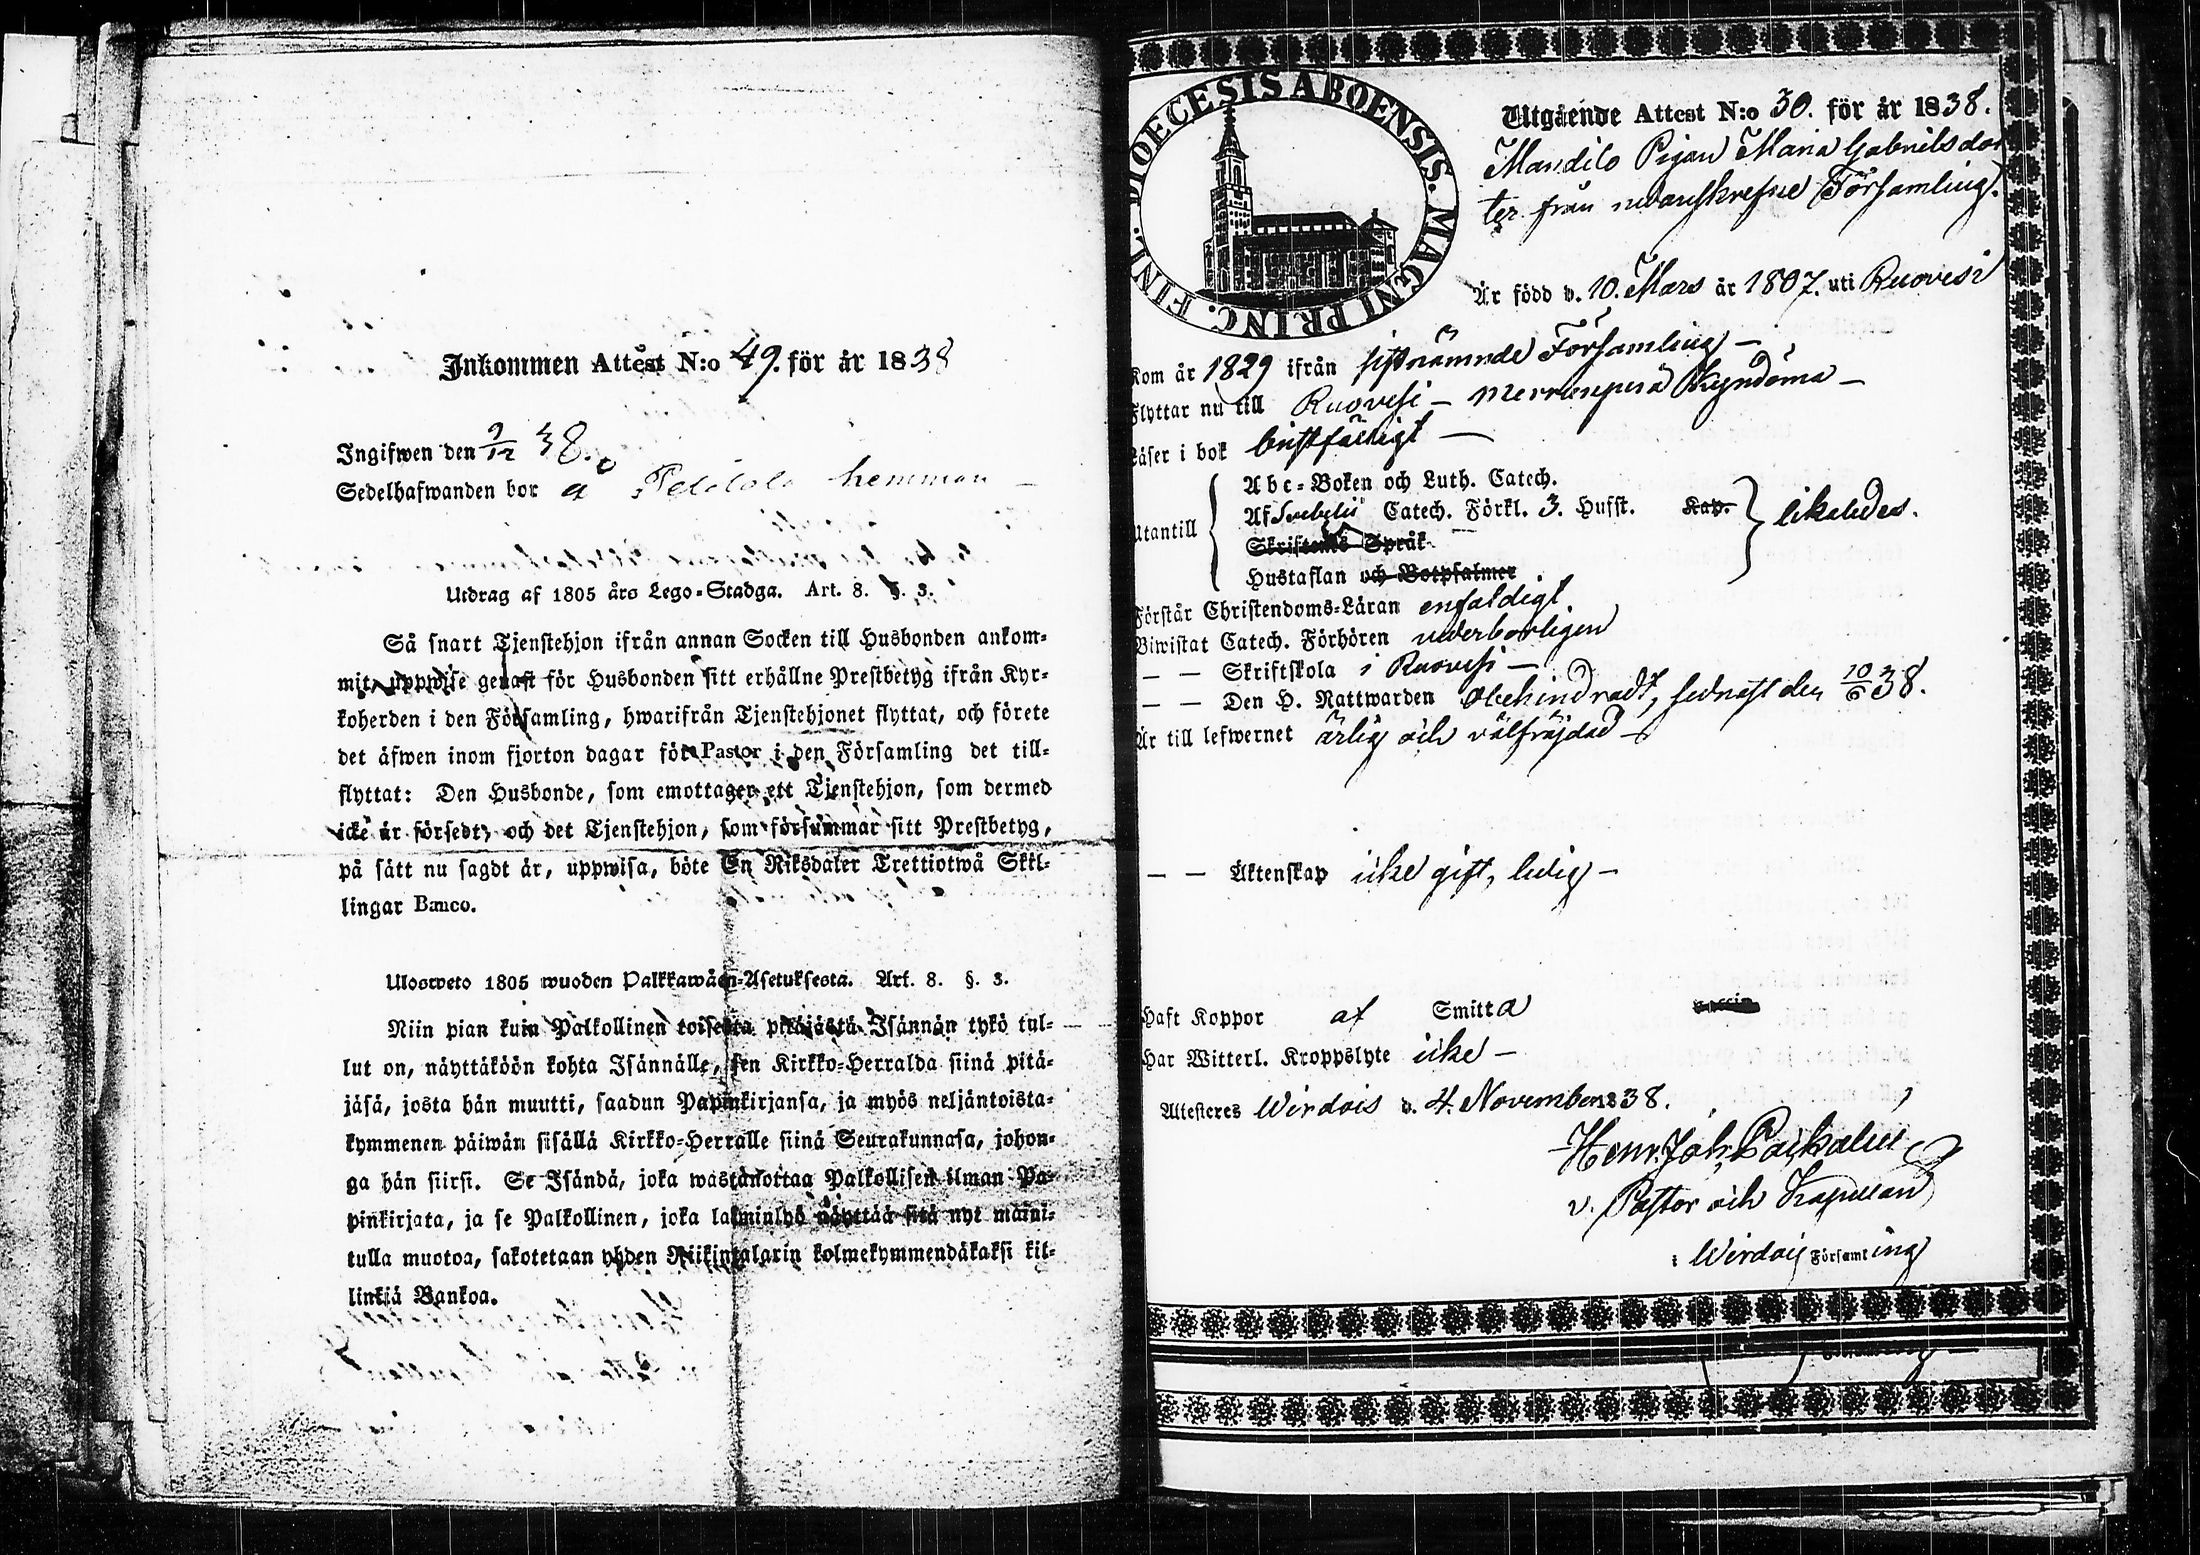 Inkommen Attest N:o 49. för år 1838
Ingifwen den 9/12 38.
Sedelhafwanden bor å hemman
Utdrag af 1805 års Lego-Stadga. Art. 8. §. 3.
Så snart Tjenstehjon ifrån annan Socken till Husbonden ankom-
mit, uppwise genast för Husbonden sitt erhållne Prestbetyg ifrån Kyr-
koherden i den Församling, hwarifrån Tjenstehjonet flyttat, och förete
det äfwen inom fjorton dagar för Pastor i den Församling det till-
flyttat: Den Husbonde, som emottager ett Tjenstehjon, som dermed
icke är försedt, och det Tjenstehjon, som försummar sitt Prestbetyg,
på sätt nu sagdt är, uppwisa, böte En Riksdaler Trettiotwå Skil-
lingar Banco.
Ulosweto 1805 wuoden Palkkawäen-Asetuksesta. Art. 8. §. 3.
Niin pian kuin Palkollinen toisesta pitäjästä Isännän tykö tul-
lut on, näyttäköön kohta Isännälle, sen Kirkko-Herralda siinä pitä-
jäsä, josta hän muutti, saadun Papinkirjansa, ja myös neljäntoista-
kymmenen päiwän sisällä Kirkko-Herralle siinä Seurakunnasa, johon-
ga hän siirsi. Se Isändä, joka wastanottaa Palkollisen ilman Pa-
pinkirjata, ja se Palkollinen, joka laiminlyö näyttää sitä nyt maini-
tulla muotoa, sakotetaan yhden Riikintalarin kolmekymmendäkaksi kil-
linkiä Bankoa.
DIOECESIS ABOENSIS. MAGNI PRINC. FINL.
Utgående Attest N:o 30. för år 1838.
Pigan Maria Gabrielsdot
ter från Församling.
Är född d. 10. Mars år 1807. uti Ruovesi
Kom år 1829 ifrån sistnämnde Församling –
Flyttar nu till Ruovesi –
Läser i bok bristfälligt –
Utantill
Abc-Boken och Luth. Catech.
Af Svebelii Catech. Förkl. 3. Hufst. Kap. likaledes.
Skriftenes Språk
Hustaflan och Botpsalmer
Förstår Christendoms-Läran enfaldigt
Biwistat Catech. Förhören vederbörligen
– – Skriftskola i Ruovesi –
– – Den H. Nattwarden obehindradt, sednast den 10/6 38.
Är till lefwernet ärlig och välfräjdad –
– – Äktenskap icke gift, ledig –
Haft Koppor af Smitta
Har Witterl. Kroppslyte icke –
Attesteres Wirdois d. 4. November 1838.
Henr. Joh.
v. Pastor och Kapellan
i Wirdois Församling